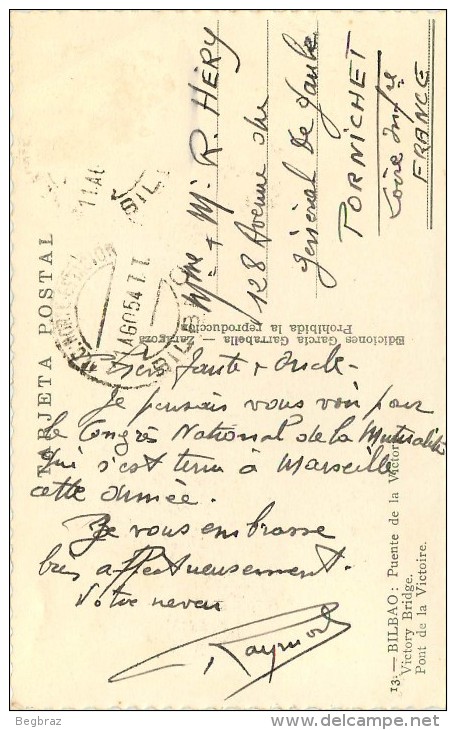 TARJETA POSTAL
11 AGO 54 17
Mme & Mr R. HÉRY
128 Avenue du
Général de Gaulle
PORNICHET
Loire Infre
FRANCE
Ediciones García Garrabella — Zaragoza
Prohibida la reproducción
Chers Tante & Oncle
Je pensais vous voir pour
le Congrès National de la Mutualité
qui s'est tenu à Marseille
cette année.
Je vous embrasse
bien affectueusement.
Votre neveu
Raymond
13.— BILBAO: Puente de la Victoria.
Victory Bridge.
Pont de la Victoire.
Begbraz
delcampe.net